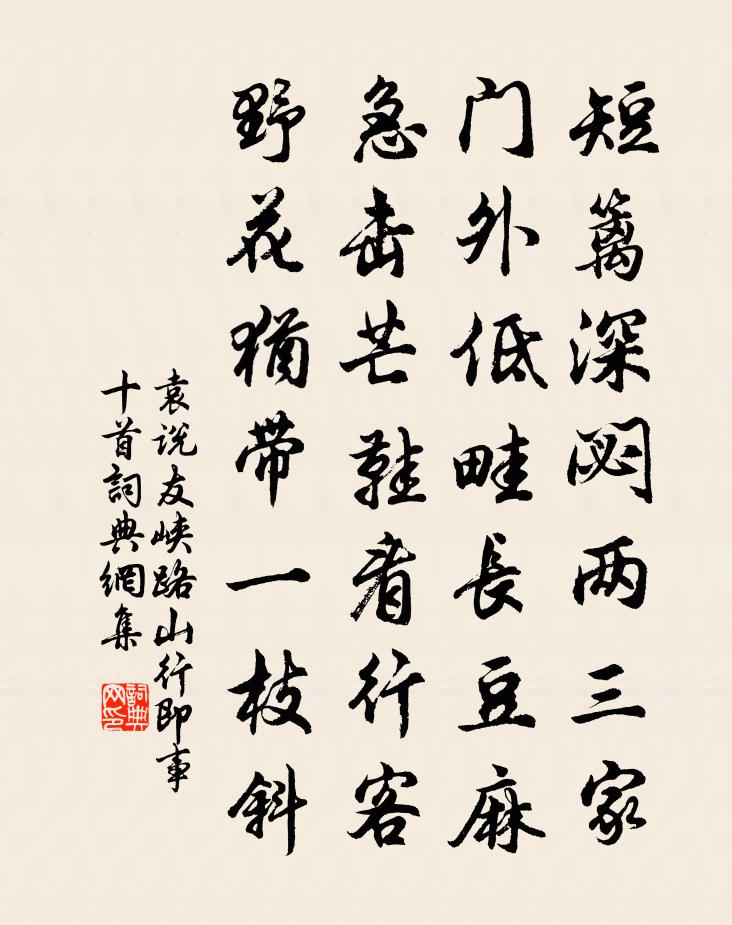 短篱深閟两三家
门外低畦長豆麻
急击芒鞋看行客
野花犹带一枝斜
袁说友峡路山行即事
十首詞典網集
詞典
网印